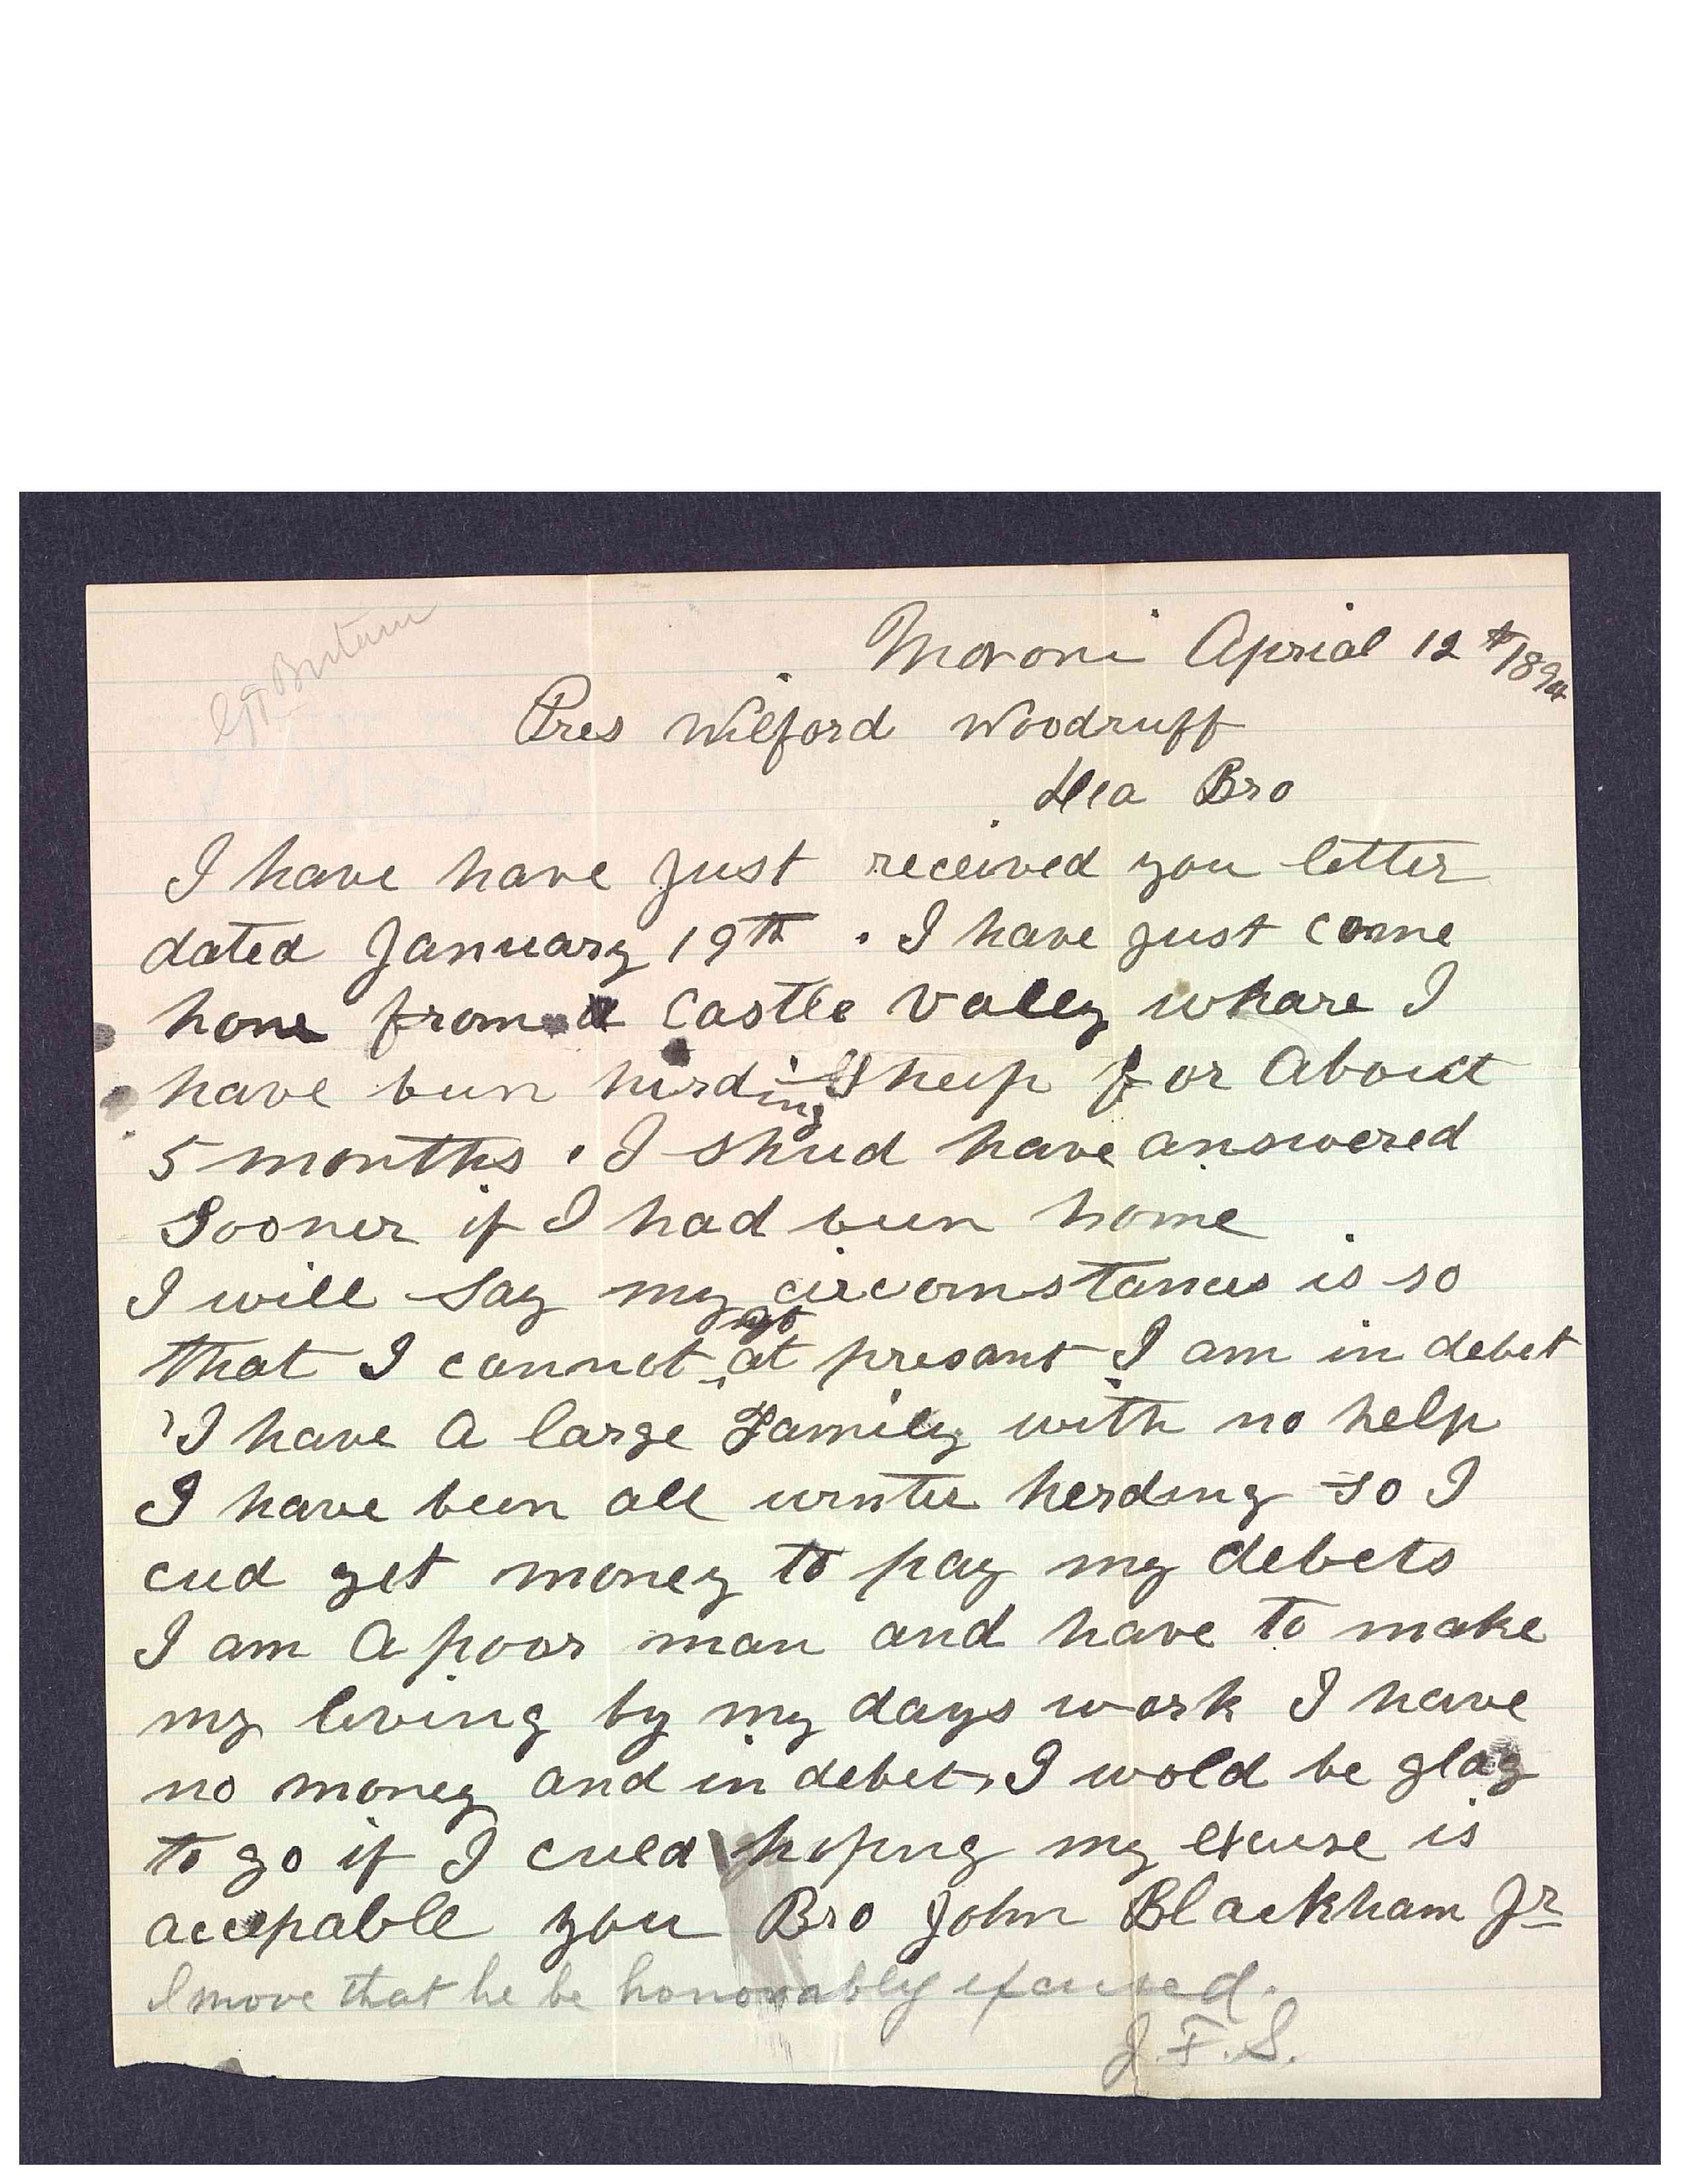 Gt Britain
Moroni Aprial 12th 1894
Pres Wilford Woodruff
Dea Bro
I have have just received you letter
dated January 19th . I have just come
home from Castle Valey whare I
have bun hirding Sheep for About
5 months . I shud have answered
Sooner if I had bun home
I will Say my circomstances is so
go
that I connot at presant I am in debet
I have A large Family with no help
I have been all wntter herding so I
cud get money to pay my debets
I am A poor man and have to make
my living by my days work I have
no money and in debet, I wold be glad
to go if I culd hoping my excuse is
accepable you Bro John Blackham Jr
I move that he be honorably excused.
J. F. S.